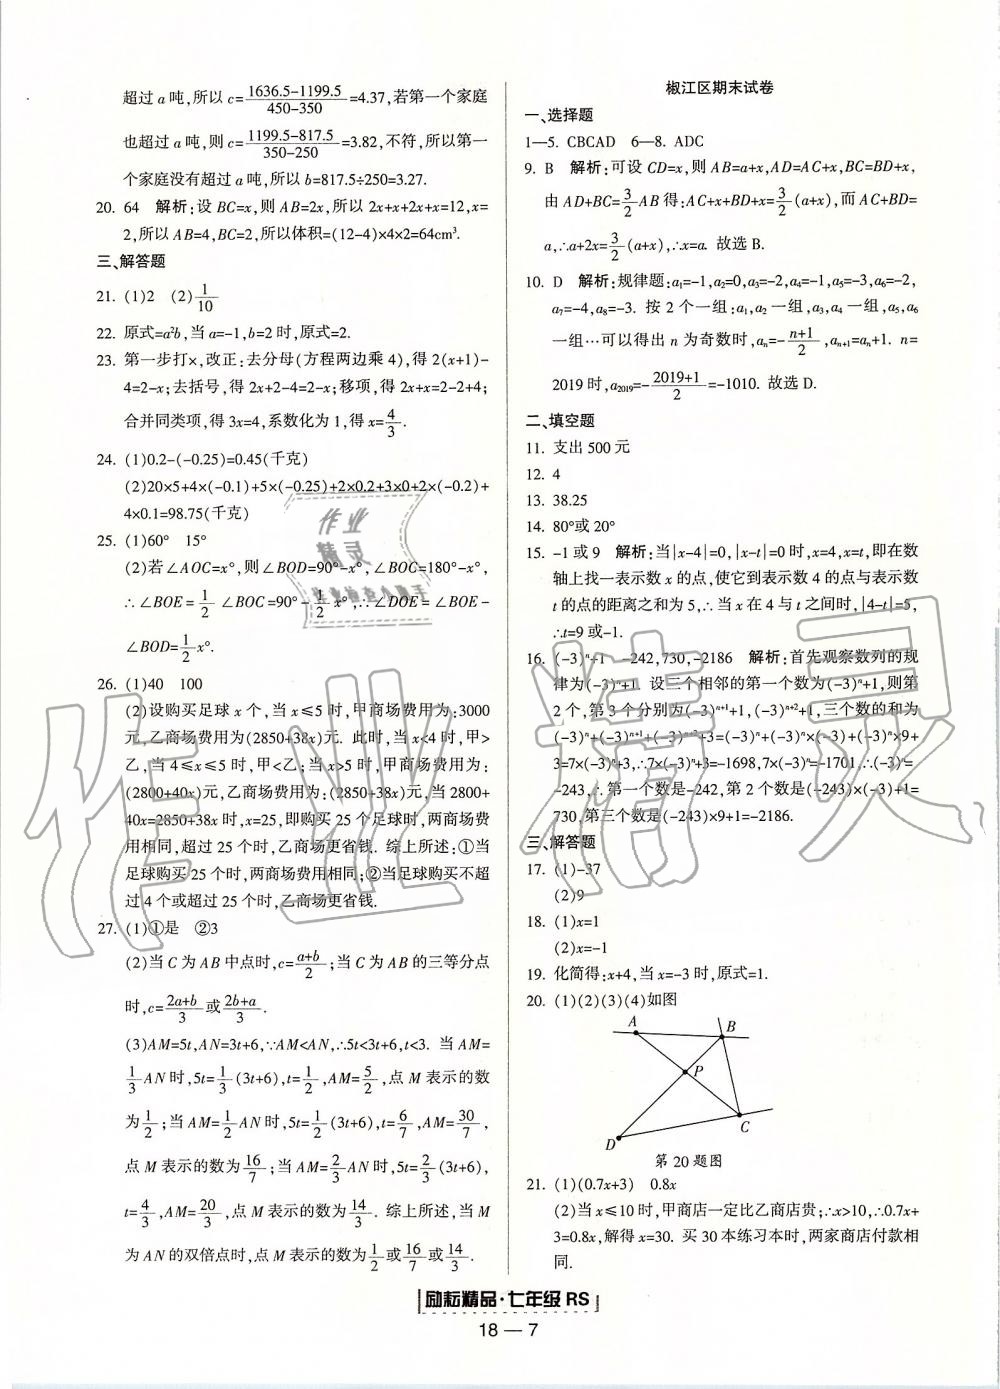 超过 a 吨,所以 c=\frac{1636.5-1199.5}{450-350}=4.37,若第一个家庭
也超过 a 吨,则 c=\frac{1199.5-817.5}{350-250}=3.82,不符,所以第一
个家庭没有超过 a 吨,所以 b=817.5÷250=3.27.
20. 64 解析:设 BC=x,则 AB=2x,所以 2x+x+2x+x=12,x=
2,所以 AB=4,BC=2,所以体积=(12-4)×4×2=64cm³.
三、解答题
21. (1)2 (2)\frac{1}{10}
22. 原式=a²b,当 a=-1,b=2 时,原式=2.
23. 第一步打×,改正:去分母(方程两边乘 4),得 2(x+1)-
4=2-x;去括号,得 2x+2-4=2-x;移项,得 2x+x=2-2+4;
合并同类项,得 3x=4,系数化为 1,得 x=\frac{4}{3}.
24. (1)0.2-(-0.25)=0.45(千克)
(2)20×5+4×(-0.1)+5×(-0.25)+2×0.2+3×0+2×(-0.2)+
4×0.1=98.75(千克)
25. (1)60° 15°
(2)若∠AOC=x°,则∠BOD=90°-x°,∠BOC=180°-x°,
∴∠BOE=\frac{1}{2}∠BOC=90°-\frac{1}{2}x°,∴∠DOE=∠BOE-
∠BOD=\frac{1}{2}x°.
26. (1)40 100
(2)设购买足球 x 个,当 x≤5 时,甲商场费用为:3000
元,乙商场费用为(2850+38x)元. 此时,当 x<4 时,甲>
乙,当 4≤x≤5 时,甲<乙;当 x>5 时,甲商场费用为:
(2800+40x)元,乙商场费用为:(2850+38x)元,当 2800+
40x=2850+38x 时,x=25,即购买 25 个足球时,两商场费
用相同,超过 25 个时,乙商场更省钱. 综上所述:①当
足球购买 25 个时,两商场费用相同;②当足球购买不超
过 4 个或超过 25 个时,乙商场更省钱.
27. (1)①是 ②3
(2)当 C 为 AB 中点时,c=\frac{a+b}{2};当 C 为 AB 的三等分点
时,c=\frac{2a+b}{3}或\frac{2b+a}{3}.
(3)AM=5t,AN=3t+6,∵AM<AN,∴5t<3t+6,t<3. 当 AM=
\frac{1}{3}AN 时,5t=\frac{1}{3}(3t+6),t=\frac{1}{2},AM=\frac{5}{2},点 M 表示的数
为\frac{1}{2};当 AM=\frac{1}{2}AN 时,5t=\frac{1}{2}(3t+6),t=\frac{6}{7},AM=\frac{30}{7},
点 M 表示的数为\frac{16}{7};当 AM=\frac{2}{3}AN 时,5t=\frac{2}{3}(3t+6),
t=\frac{4}{3},AM=\frac{20}{3},点 M 表示的数为\frac{14}{3}. 综上所述,当 M
为 AN 的双倍点时,点 M 表示的数为\frac{1}{2}或\frac{16}{7}或\frac{14}{3}.
椒江区期末试卷
一、选择题
1—5. CBCAD 6—8. ADC
9. B 解析:可设 CD=x,则 AB=a+x,AD=AC+x,BC=BD+x,
由 AD+BC=\frac{3}{2}AB 得:AC+x+BD+x=\frac{3}{2}(a+x),而 AC+BD=
a,∴a+2x=\frac{3}{2}(a+x),∴x=a. 故选 B.
10. D 解析:规律题:a₁=-1,a₂=0,a₃=-2,a₄=-1,a₅=-3,a₆=-2,
a₇=-4,a₈=-3. 按 2 个一组:a₁,a₂ 一组,a₃,a₄ 一组,a₅,a₆
一组…可以得出 n 为奇数时,aₙ=-\frac{n+1}{2},aₙ₊₁=aₙ+1. n=
2019 时,a₂₀₁₉=-\frac{2019+1}{2}=-1010. 故选 D.
二、填空题
11. 支出 500 元
12. 4
13. 38.25
14. 80°或 20°
15. -1 或 9 解析:当|x-4|=0,|x-t|=0 时,x=4,x=t,即在数
轴上找一表示数 x 的点,使它到表示数 4 的点与表示数
t 的点的距离之和为 5,∴当 x 在 4 与 t 之间时,|4-t|=5,
∴t=9 或-1.
16. (-3)ⁿ+1 -242,730,-2186 解析:首先观察数列的规
律为(-3)ⁿ+1. 设三个相邻的第一个数为(-3)ⁿ+1,则第
2 个,第 3 个分别为(-3)ⁿ⁺¹+1,(-3)ⁿ⁺²+1,三个数的和为
(-3)ⁿ+(-3)ⁿ⁺¹+(-3)ⁿ⁺²+3=(-3)ⁿ+(-3)ⁿ×(-3)+(-3)ⁿ×9+
3=7×(-3)ⁿ+3,∴7×(-3)ⁿ+3=-1698,7×(-3)ⁿ=-1701,∴(-3)ⁿ=
-243,∴第一个数是-242,第 2 个数是(-243)×(-3)+1=
730,第三个数是(-243)×9+1=-2186.
三、解答题
17. (1)-37
(2)9
18. (1)x=1
(2)x=-1
19. 化简得:x+4,当 x=-3 时,原式=1.
20. (1)(2)(3)(4)如图
A
B
P
C
D
第 20 题图
21. (1)(0.7x+3) 0.8x
(2)当 x≤10 时,甲商店一定比乙商店贵;∴x>10,∴0.7x+
3=0.8x,解得 x=30. 买 30 本练习本时,两家商店付款相
同.
励耘精品·七年级 RS
18 — 7
作业
精灵
作业精灵